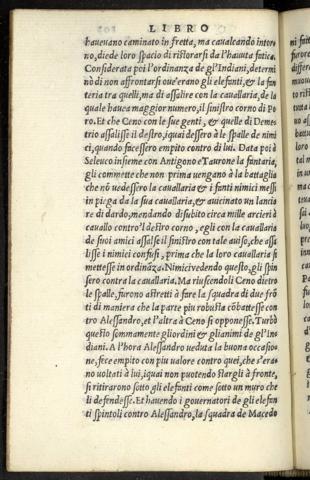 LIBRO
haueuano caminato in fretta, ma caualcando intor
no, diede loro spacio di ristorarsi da l'hauuta fatica.
Considerata poi l'ordinanza de gl'Indiani, determi
nò di non affrontarsi oue'erano gli elefanti, & la fan
teria tra quelli, ma di assalire con la cauallaria, de la
quale hauea maggior numero, il sinistro corno di Po
ro. Et che Ceno con le sue genti, & quelle di Deme
trio assalisse il destro, iquai dessero à le spalle de nimi
ci, quando facessero empito contro di lui. Data poi à
Seleuco insieme con Antigono e Taurone la fantaria,
gli commette che non prima uengano à la battaglia
che nõ uedessero la cauallaria & i fanti nimici messi
in piega da la sua cauallaria, & auicinato un lancia
re di dardo, mandando di subito circa mille arcieri à
cauallo contro'l destro corno, egli con la cauallaria
de suoi amici assalse il sinistro con tale auiso, che assa
lisse i nimici confusi, prima che la loro cauallaria si
mettesse in ordināza. Nimici vedendo questo, gli spin
sero contra la cauallaria. Ma riuscendoli Ceno dietro
le spalle, furono astretti à fare la squadra di due frõ
ti di maniera che la parte piu robusta cõbattesse con
tro Alessandro, et l'altra à Ceno si opponesse. Turbò
questo sommamente gli ordini & gli animi de gl'In
diani. A l'hora Alessandro ueduta la buona occasio
ne, fece empito con piu ualore contro quei, che s'era
no uoltati à lui, iquai non puotendo stargli à fronte,
si ritirarono sotto gli elefanti come sotto un muro che
li defendesse. Et hauendo i gouernatori de gli elefan
ti spintoli contro Alessandro, la squadra de Macedo